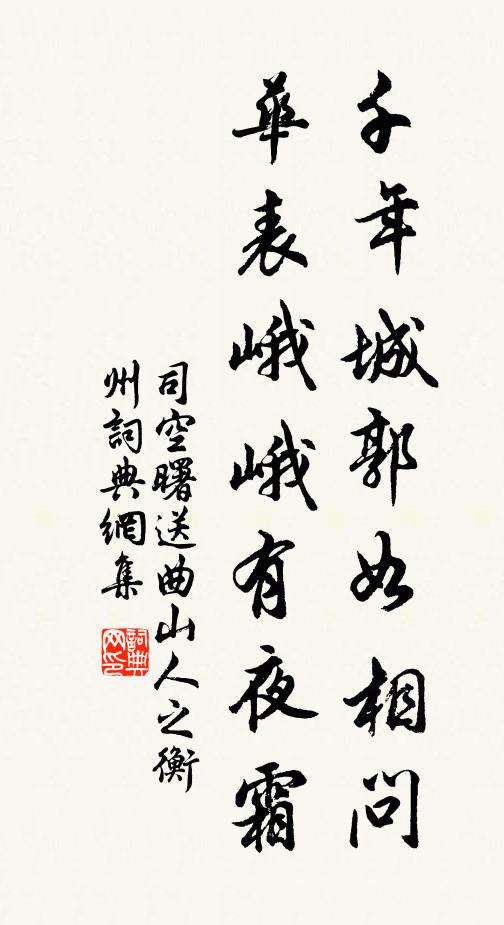 千年城郭如相問
華表峨峨有夜霜
司空曙送曲山人之衡
州詞典網集
詞典网印